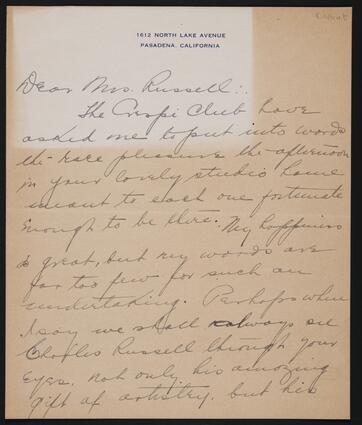 1612 NORTH LAKE AVENUE
PASADENA, CALIFORNIA
Dear Mrs. Russell:.
The Crespi Club have
asked me to put into words
the race pleasure the afternoon
in your lovely studio home
meant to each one fortunate
enough to be there. My happiness
is great, but my words are
far too few for such an
undertaking. Perhaps when
I say we shall always see
Charles Russell through your
eyes, not only his amazing
gift of artistry, but his